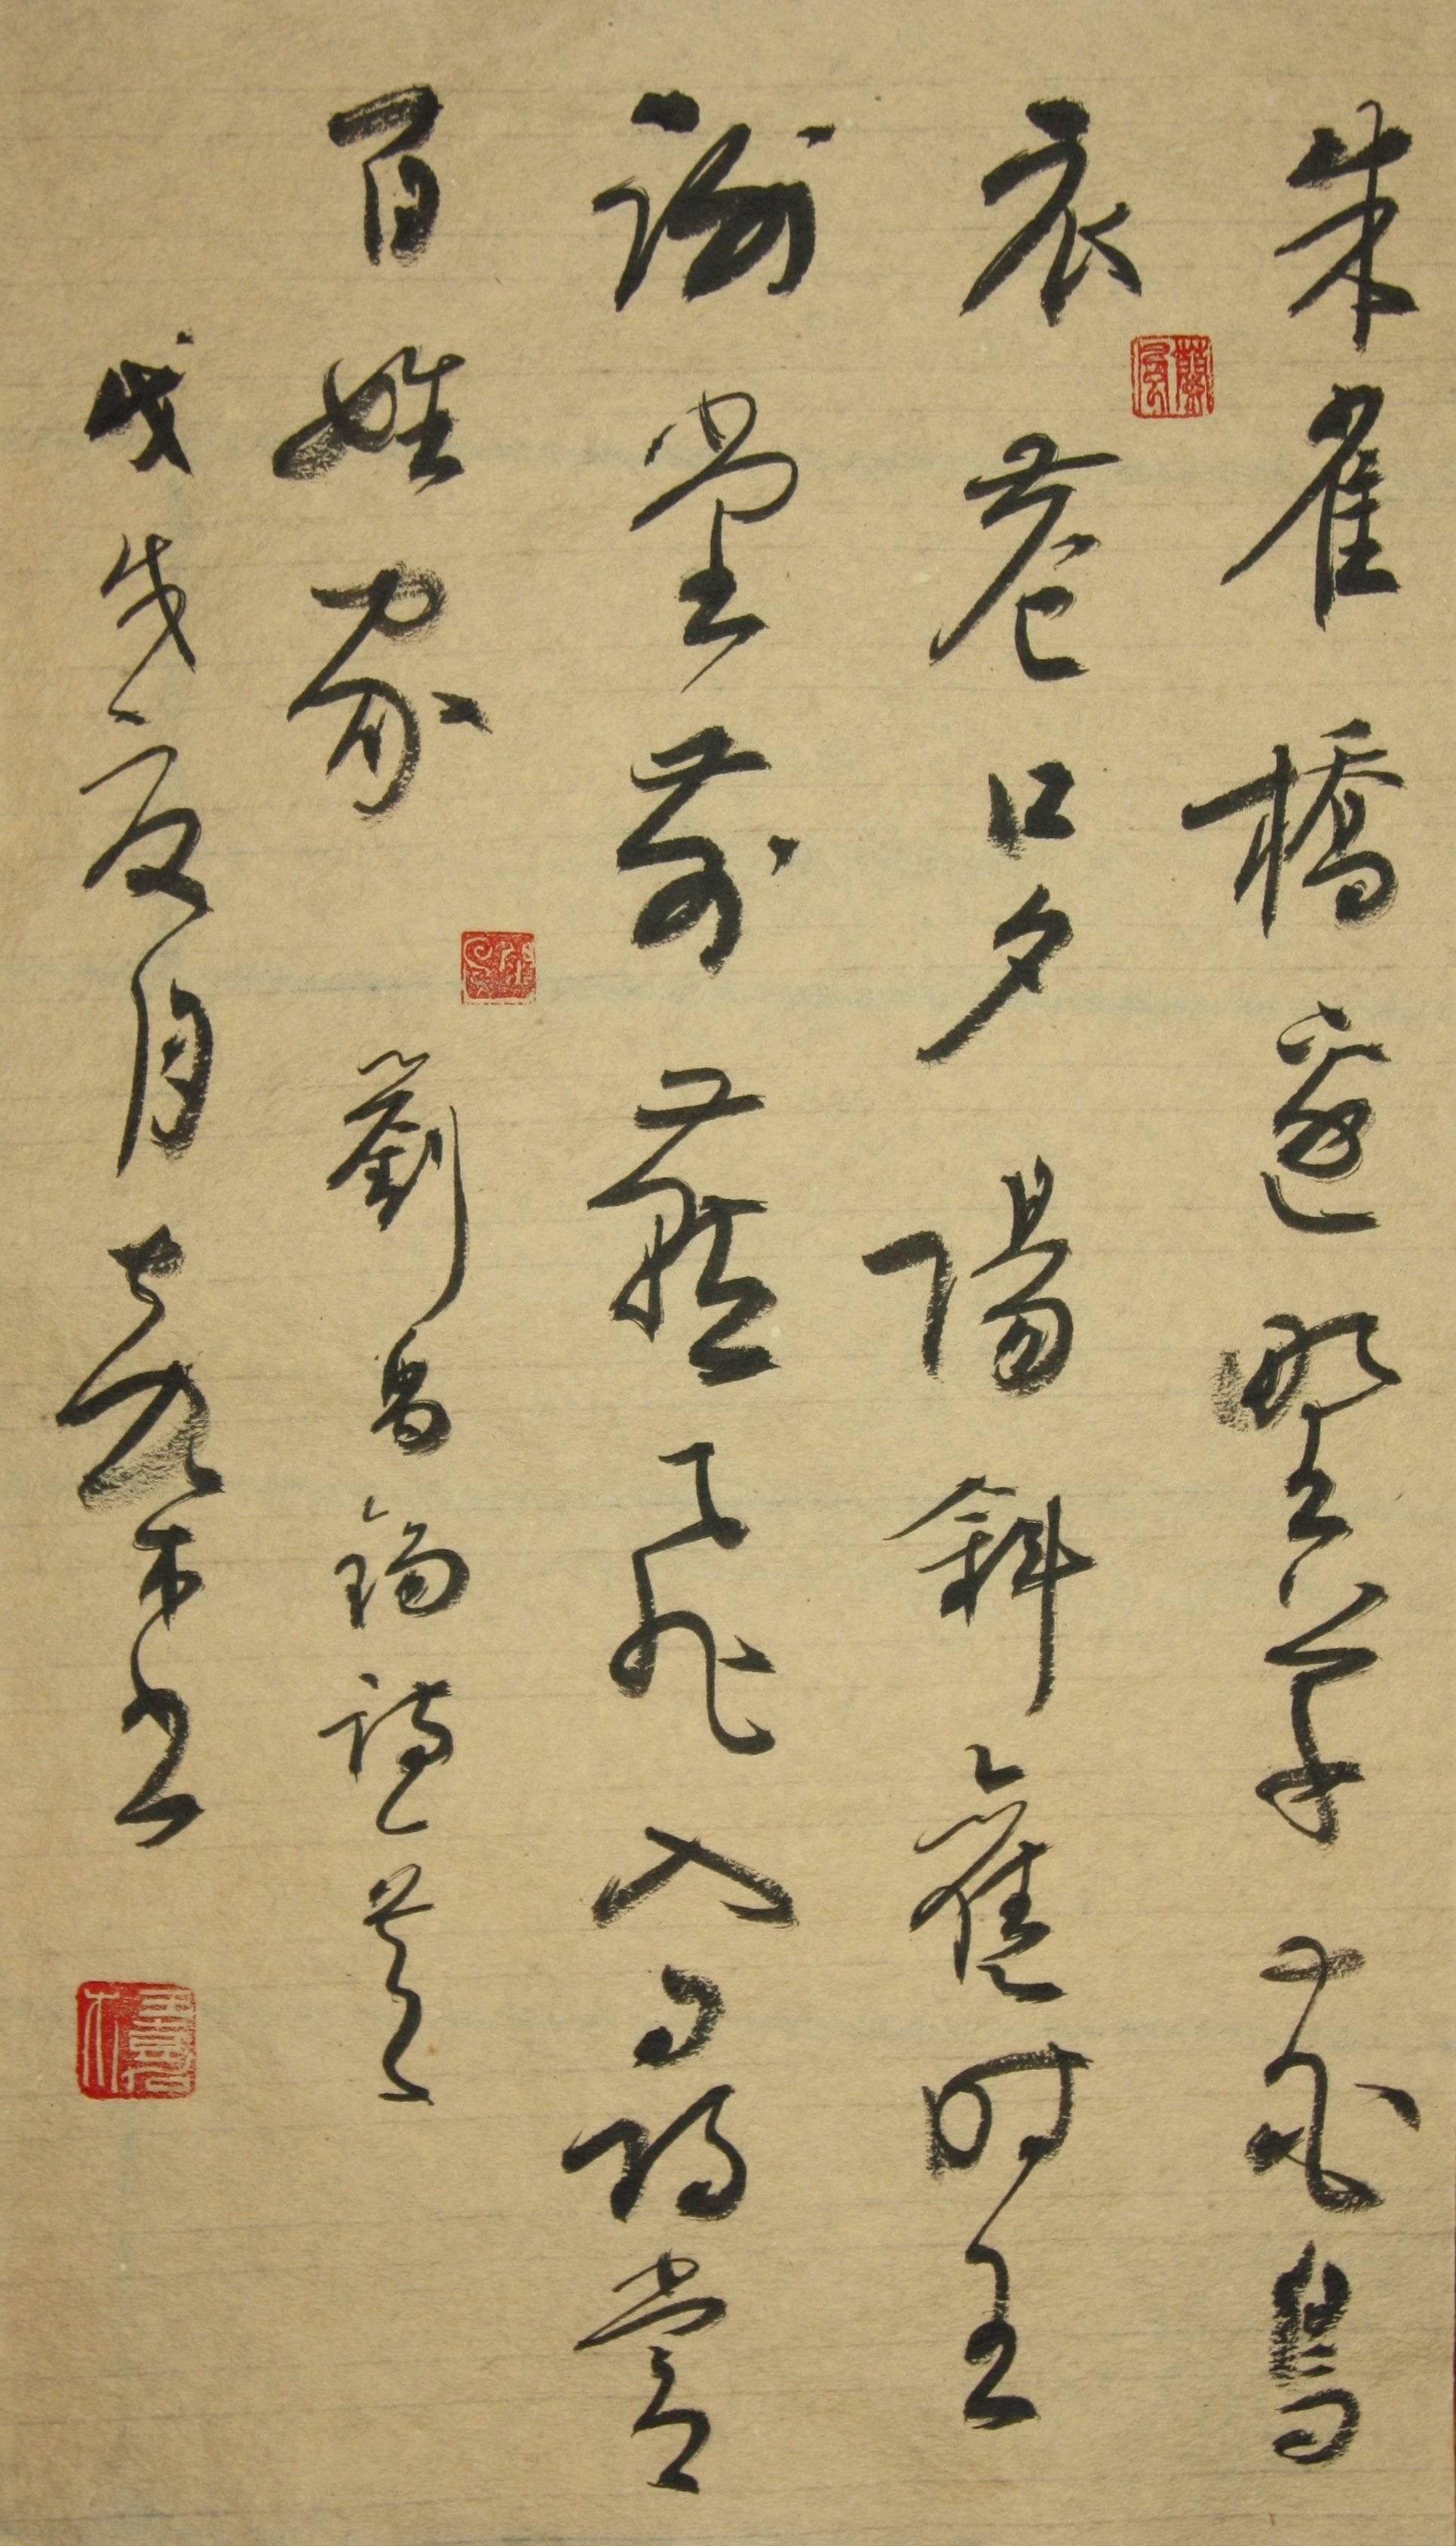 朱雀橋邊野草花烏
衣巷口夕陽斜舊时王
謝堂前燕飛入尋常
百姓家 劉禹錫詩一首
戊戌夏月 木書
蘭風